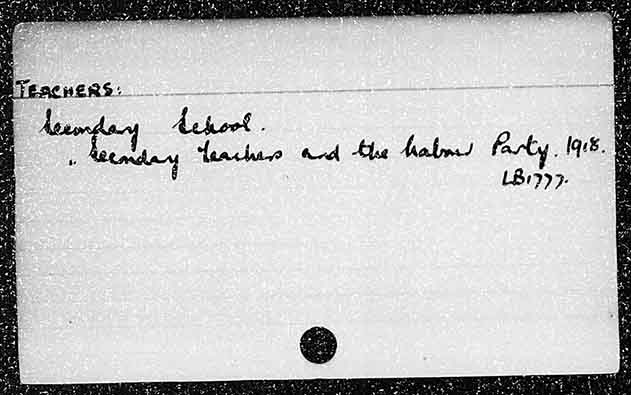 TEACHERS:
Secondary School.
" Secondary Teachers and the Labour Party. 1918.
LB1777.